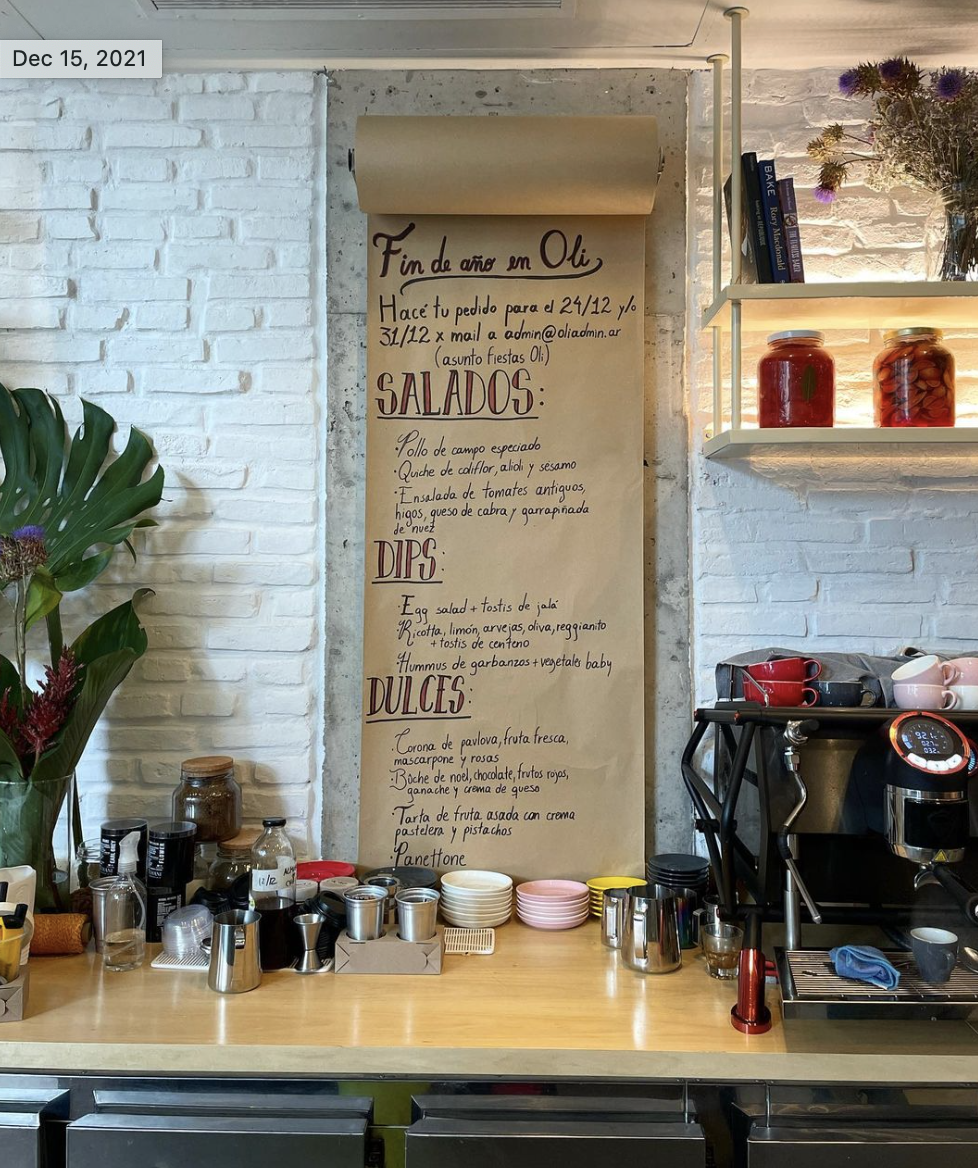 Dec 15, 2021
Fin de año en Oli
Hacé tu pedido para el 24/12 y/o
31/12 x mail a admin@oliadmin.ar
(asunto Fiestas Oli)
SALADOS:
·Pollo de campo especiado
·Quiche de coliflor, alioli y sésamo
·Ensalada de tomates antiguos,
higos, queso de cabra y garrapiñada
de nuez
DIPS:
·Egg salad + tostis de jalá
·Ricotta, limón, arvejas, oliva, reggianito
+ tostis de centeno
·Hummus de garbanzos + vegetales baby
DULCES:
·Corona de pavlova, fruta fresca,
mascarpone y rosas
·Bûche de noel, chocolate, frutos rojos,
ganache y crema de queso
·Tarta de fruta asada con crema
pastelera y pistachos
·Panettone
BAKE Rory Macdonald
12/12